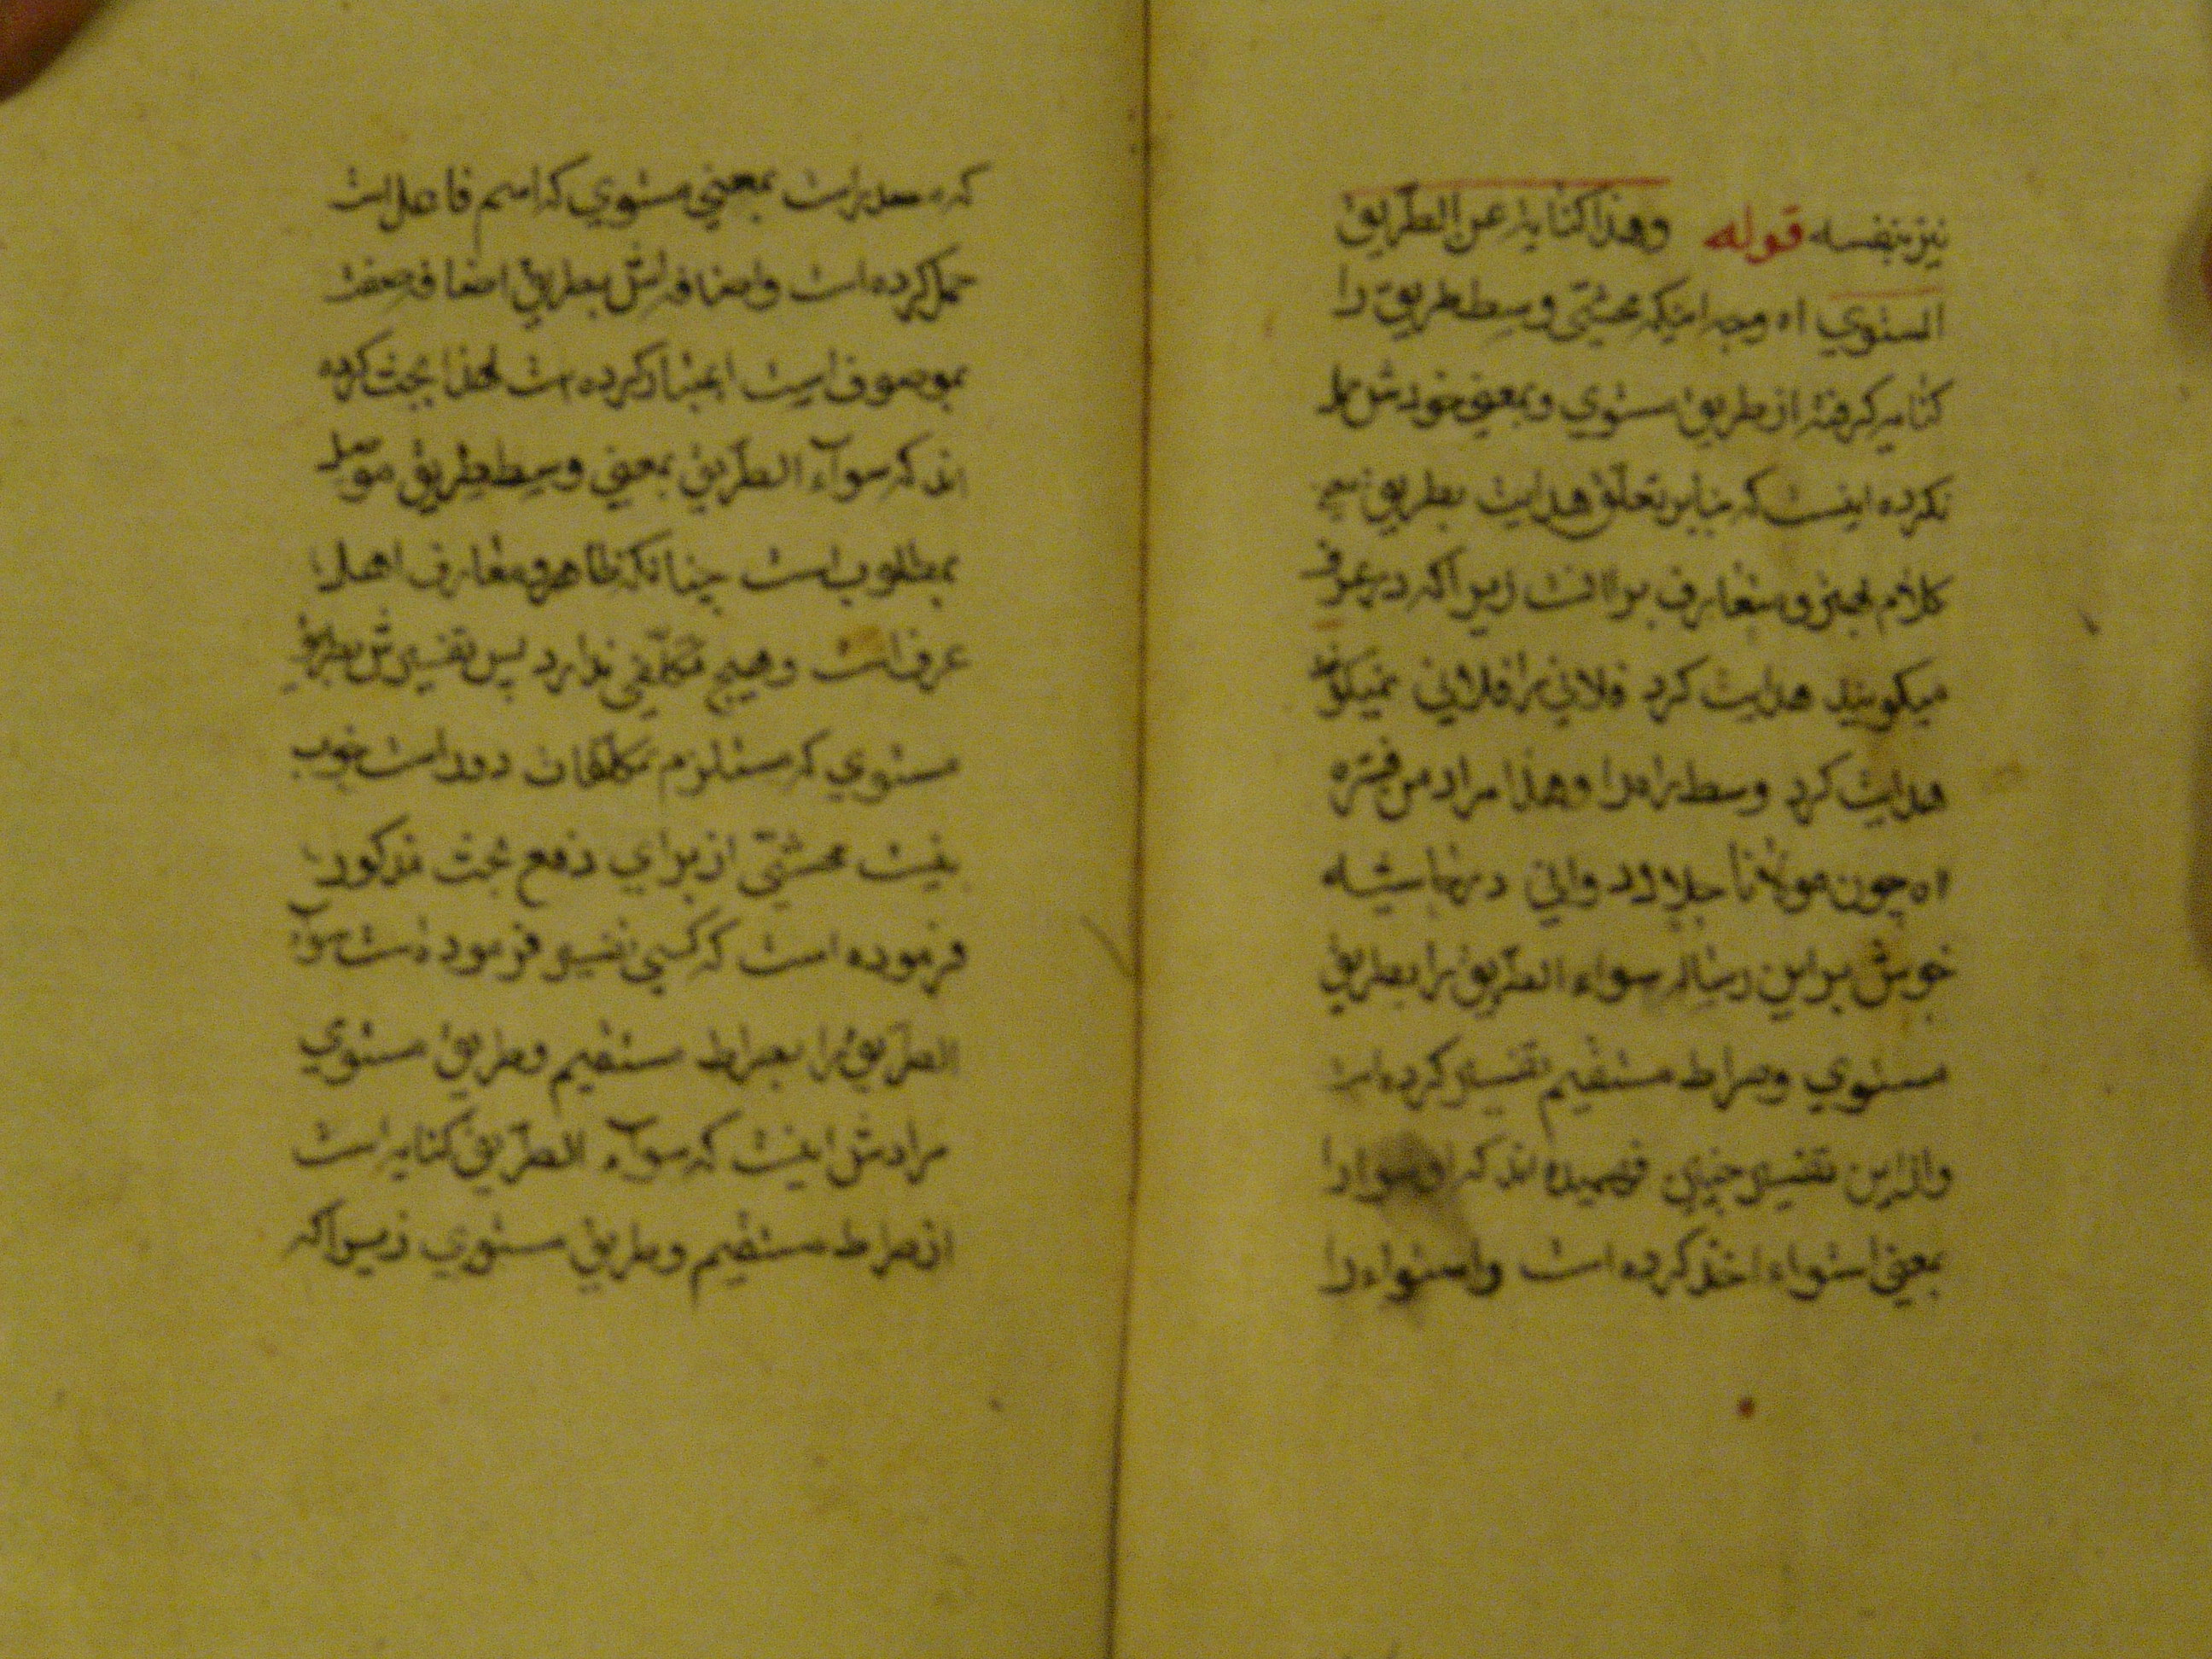 نیز بنفسه قوله وهذا کنایة عن الطّریق
المستوي اه وجه اینکه محشّی وسط طریق را
کنایه گرفته از طریق مستوي و بمعنی خودش حمل
نکرده اینست که بنابر تعلّق هدایت بطریق
کلام و متعارف برانست زیرا که در عرف
میکویند هدایت کرد فلانی را فلانی نمیکویند
هدایت کرد وسط راه را وهذا مراد من فسّره
اه چون مولانا جلال دوانی در حاشیه
خوش بر این رساله سواء الطّریق را بطریق
مستوي وصراط مستقیم تفسیر کرده است
واز این تفسیر چنین فهمیده اند که او سوا را
بمعنی استواء اخذ کرده است واستواء را
که مصدر است بمعنی مستوي که اسم فاعل است
حمل کرده است واضافه اش بطریق اضافه صفت
بموصوف است اعتبار کرده است لهذا بحث کرده
اند که سوآء الطّریق بمعنی وسط طریق موصل
بمطلوب است چنانکه ظاهر و متعارف اهل
عرف است وهیچ تکلّفی ندارد پس تفسیرش بطریق
مستوي که مستلزم تکلّفات دور است خوب
نیست محشّی از برای دفع بحث مذکور
فرموده است که کسی تفسیر فرموده است سوآء
الطّریق را بصراط مستقیم وطریق مستوي
مرادش اینست که سوآء الطّریق کنایه است
از صراط مستقیم وطریق مستوي زیرا که